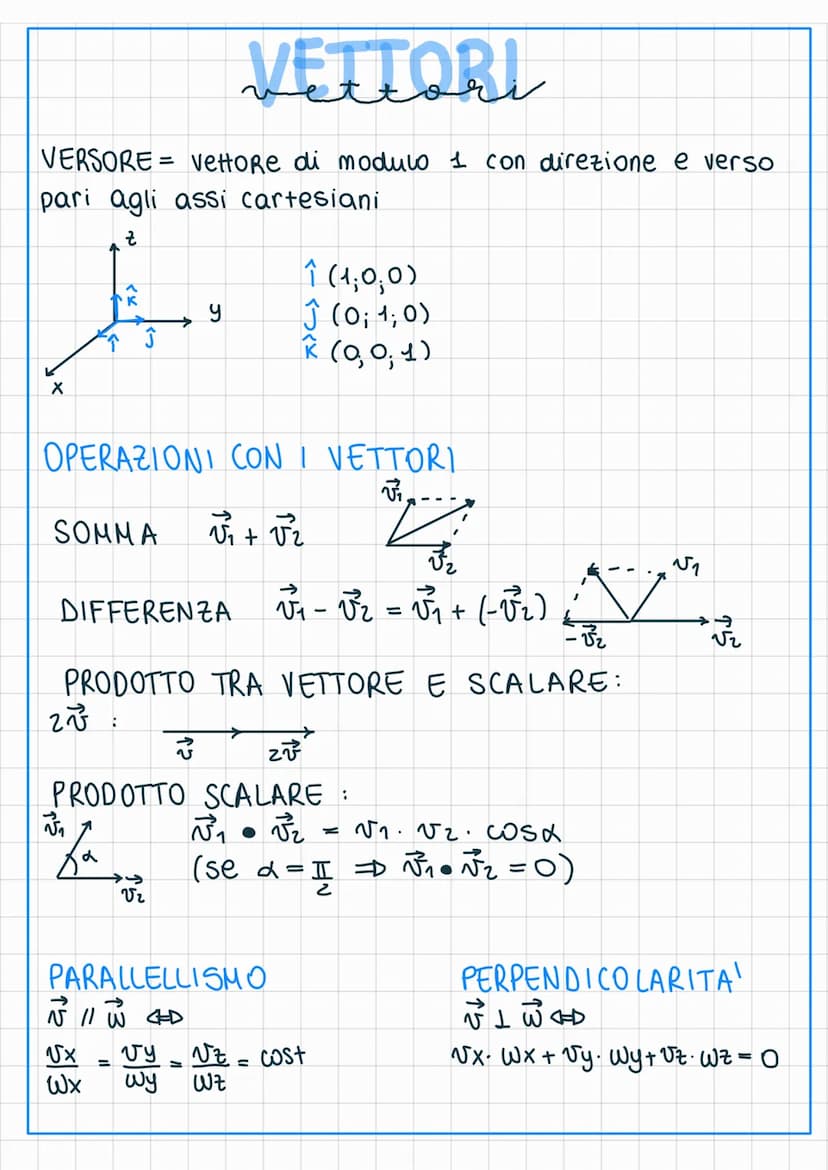 VETTORI
vettori
VERSORE = vettore di modulo 1 con direzione e verso
pari agli assi cartesiani
z
k̂
y
î ĵ
x
î (1;0;0)
ĵ (0;1;0)
k̂ (0,0;1)
OPERAZIONI CON I VETTORI
v⃗1
SOMMA v⃗1 + v⃗2
v⃗2
v1
DIFFERENZA v⃗1 - v⃗2 = v⃗1 + (-v⃗2)
-v⃗2 v⃗2
PRODOTTO TRA VETTORE E SCALARE:
2v⃗ :
v⃗ 2v⃗
PRODOTTO SCALARE :
v⃗1 α v⃗2
v⃗1 • v⃗2 = v1 · v2 · cosα
(se α = π/2 ⇒ v⃗1 • v⃗2 = 0)
PARALLELLISMO
v⃗ // w⃗ ⇔
vx/wx = vy/wy = vz/wz = cost
PERPENDICOLARITA'
v⃗ ⊥ w⃗ ⇔
vx · wx + vy · wy + vz · wz = 0